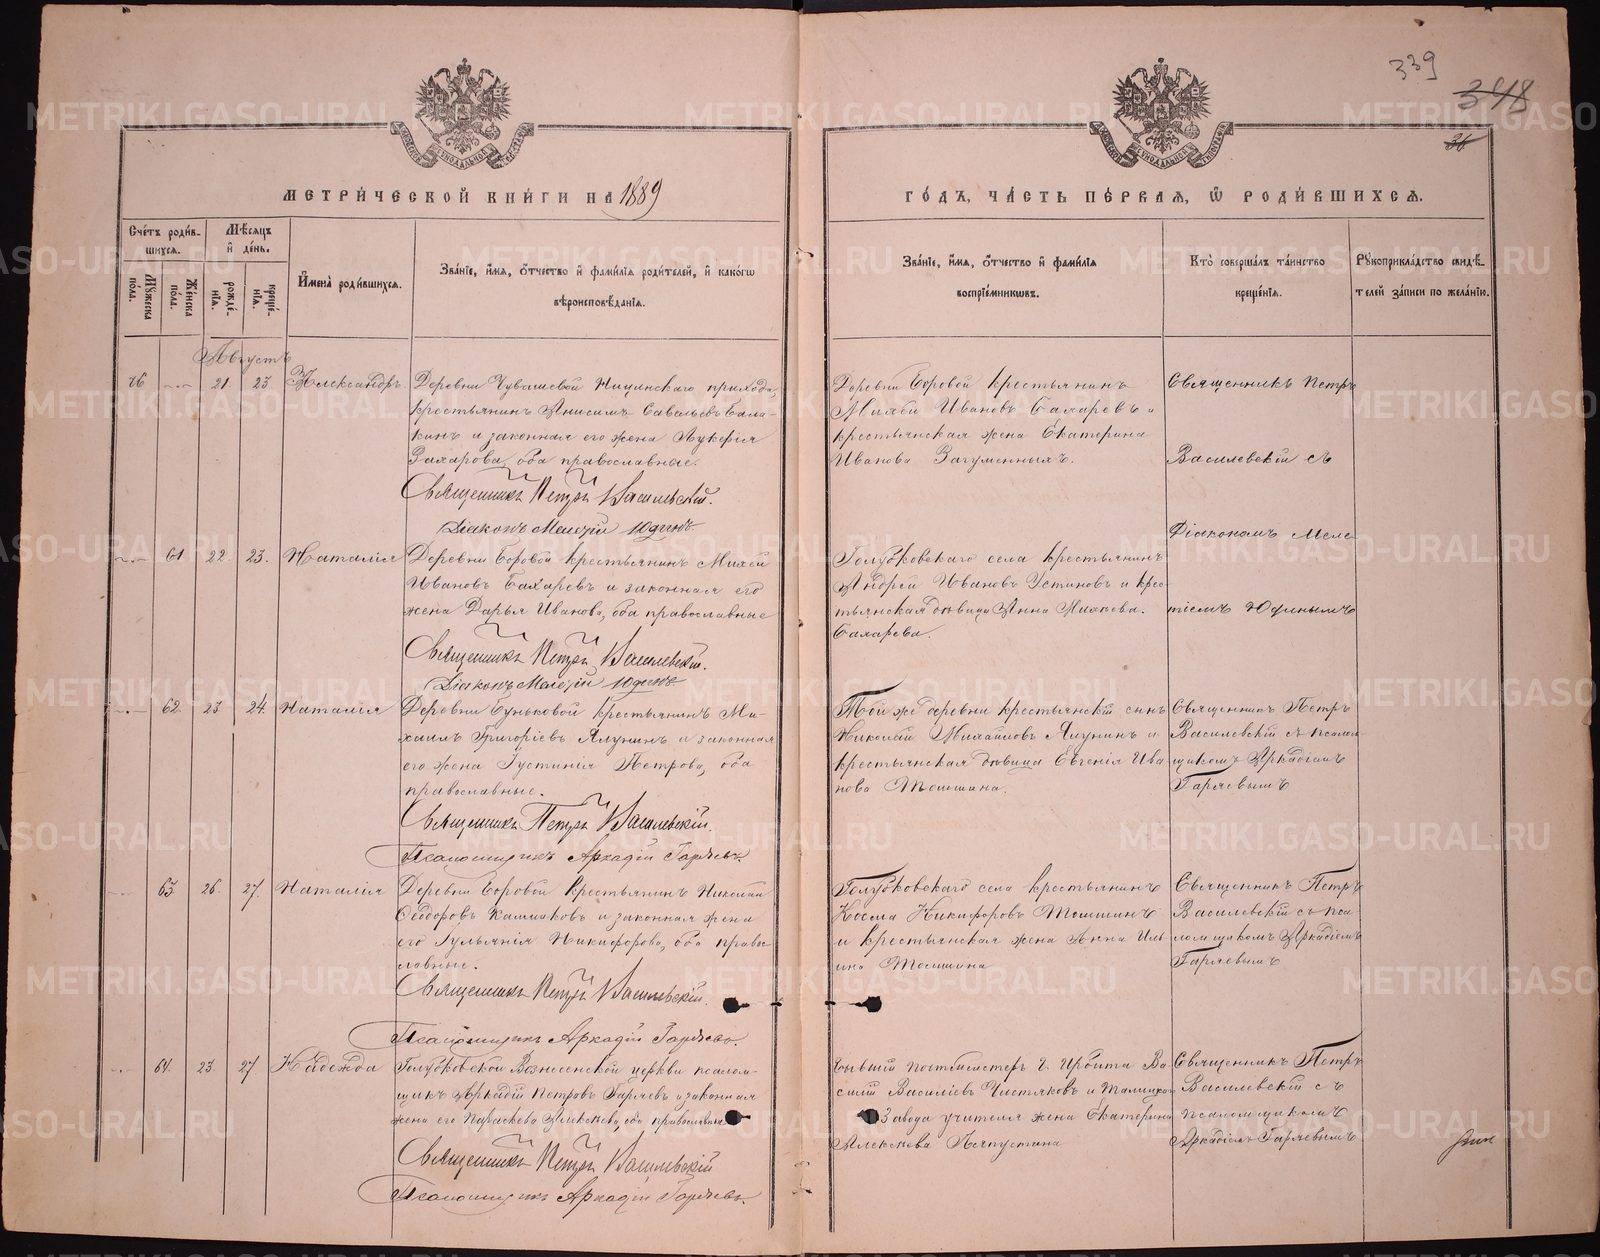 339
348
31
МЕТРИ́ЧЕСКОЙ КНИ́ГИ НА 1889
ГО́ДЪ, ЧА́СТЬ ПЕ́РВАЯ, Ѡ РОДИ́ВШИХСЯ.
Сче́тъ роди́в-
шихся.
Мѣ́сяцъ
и де́нь.
Мꙋжеска
по́ла.
Же́нска
пола.
рожде́-
нїя.
креще́-
нїя.
Имена̀ роди́вшихся.
Зва́нїе, и́мя, о́тчество и фами́лїя роди́телей, и како́гѡ
вѣроисповѣ́данїя.
Зва́нїе, и́мя, о́тчество и фами́лїя
воспрїе́мникѡвъ.
Кто̀ соверша́лъ та́инство
креще́нїя.
Рꙋкоприкла́дство свидѣ́-
телей за́писи по жела́нїю.
Августъ
46 21. 23. Александръ
Деревни Чувашевой Ницинскаго прихода,
крестьянинъ Анисимъ Савельевъ Бала-
кинъ и законная его жена Лукерія
Захарова, оба православные.
Священникъ Петръ Василевскій.
Діаконъ Мелетій Юдинъ.
Деревни Боровой крестьянинъ
Михей Ивановъ Бахаревъ и
крестьянская жена Екатерина
Иванова Загуменныхъ.
Священникъ Петръ
Василевскій съ
Діакономъ Меле
тіемъ Юдинымъ
61 22. 23. Наталія
Деревни Боровой крестьянинъ Михей
Ивановъ Бахаревъ и законная его
жена Дарья Иванова, оба православные
Священникъ Петръ Василевскій.
Діаконъ Мелетій Юдинъ
Голубковскаго села крестьянинъ
Андрей Ивановъ Устиновъ и крес
тьянская дѣвица Анна Михеева.
Бахарева.
62. 23 24. Наталія
Деревни Буньковой крестьянинъ Ми-
хаилъ Григоріевъ Ялунинъ и законная
его жена Іустинія Петрова, оба
православные.
Священникъ Петръ Василевскій.
Псаломщикъ Аркадій Гаряевъ.
Той же деревни крестьянскій сынъ
Николай Михайловъ Ялунинъ и
крестьянская дѣвица Евгенія Ива
нова Томшина.
Священникъ Петръ
Василевскій съ псалом
щикомъ Аркадіемъ
Гаряевымъ
63. 26. 27. Наталія
Деревни Боровой крестьянинъ Николай
Ѳеодоровъ Камшковъ и законная жена
его Іульянія Никифорова, оба правос
лавные.
Священникъ Петръ Василевскій.
Псаломщикъ Аркадій Гаряевъ.
Голубковскаго села крестьянинъ
Косма Никифоровъ Томшинъ
и крестьянская жена Анна Иль
ина Томшина
Священникъ Петръ
Василевскій съ пса
ломщикомъ Аркадіемъ
Гаряевымъ
64. 23. 27 Надежда
Голубковской Вознесенской церкви псалом-
щикъ Аркадій Петровъ Гаряевъ и законная
жена его Параскева Алексѣева, оба православные
Священникъ Петръ Василевскій
Псаломщикъ Аркадій Гаряевъ.
Бывшій почтмейстеръ г. Ирбита Ва-
силій Василіевъ Чистяковъ и Талицкаго
Завода учителя жена Екатерина
Алексѣева Лапустина
Священникъ Петръ
Василевскій съ
псаломщикомъ
Аркадіемъ Гаряевымъ
METRIKI.GASO-URAL.RU